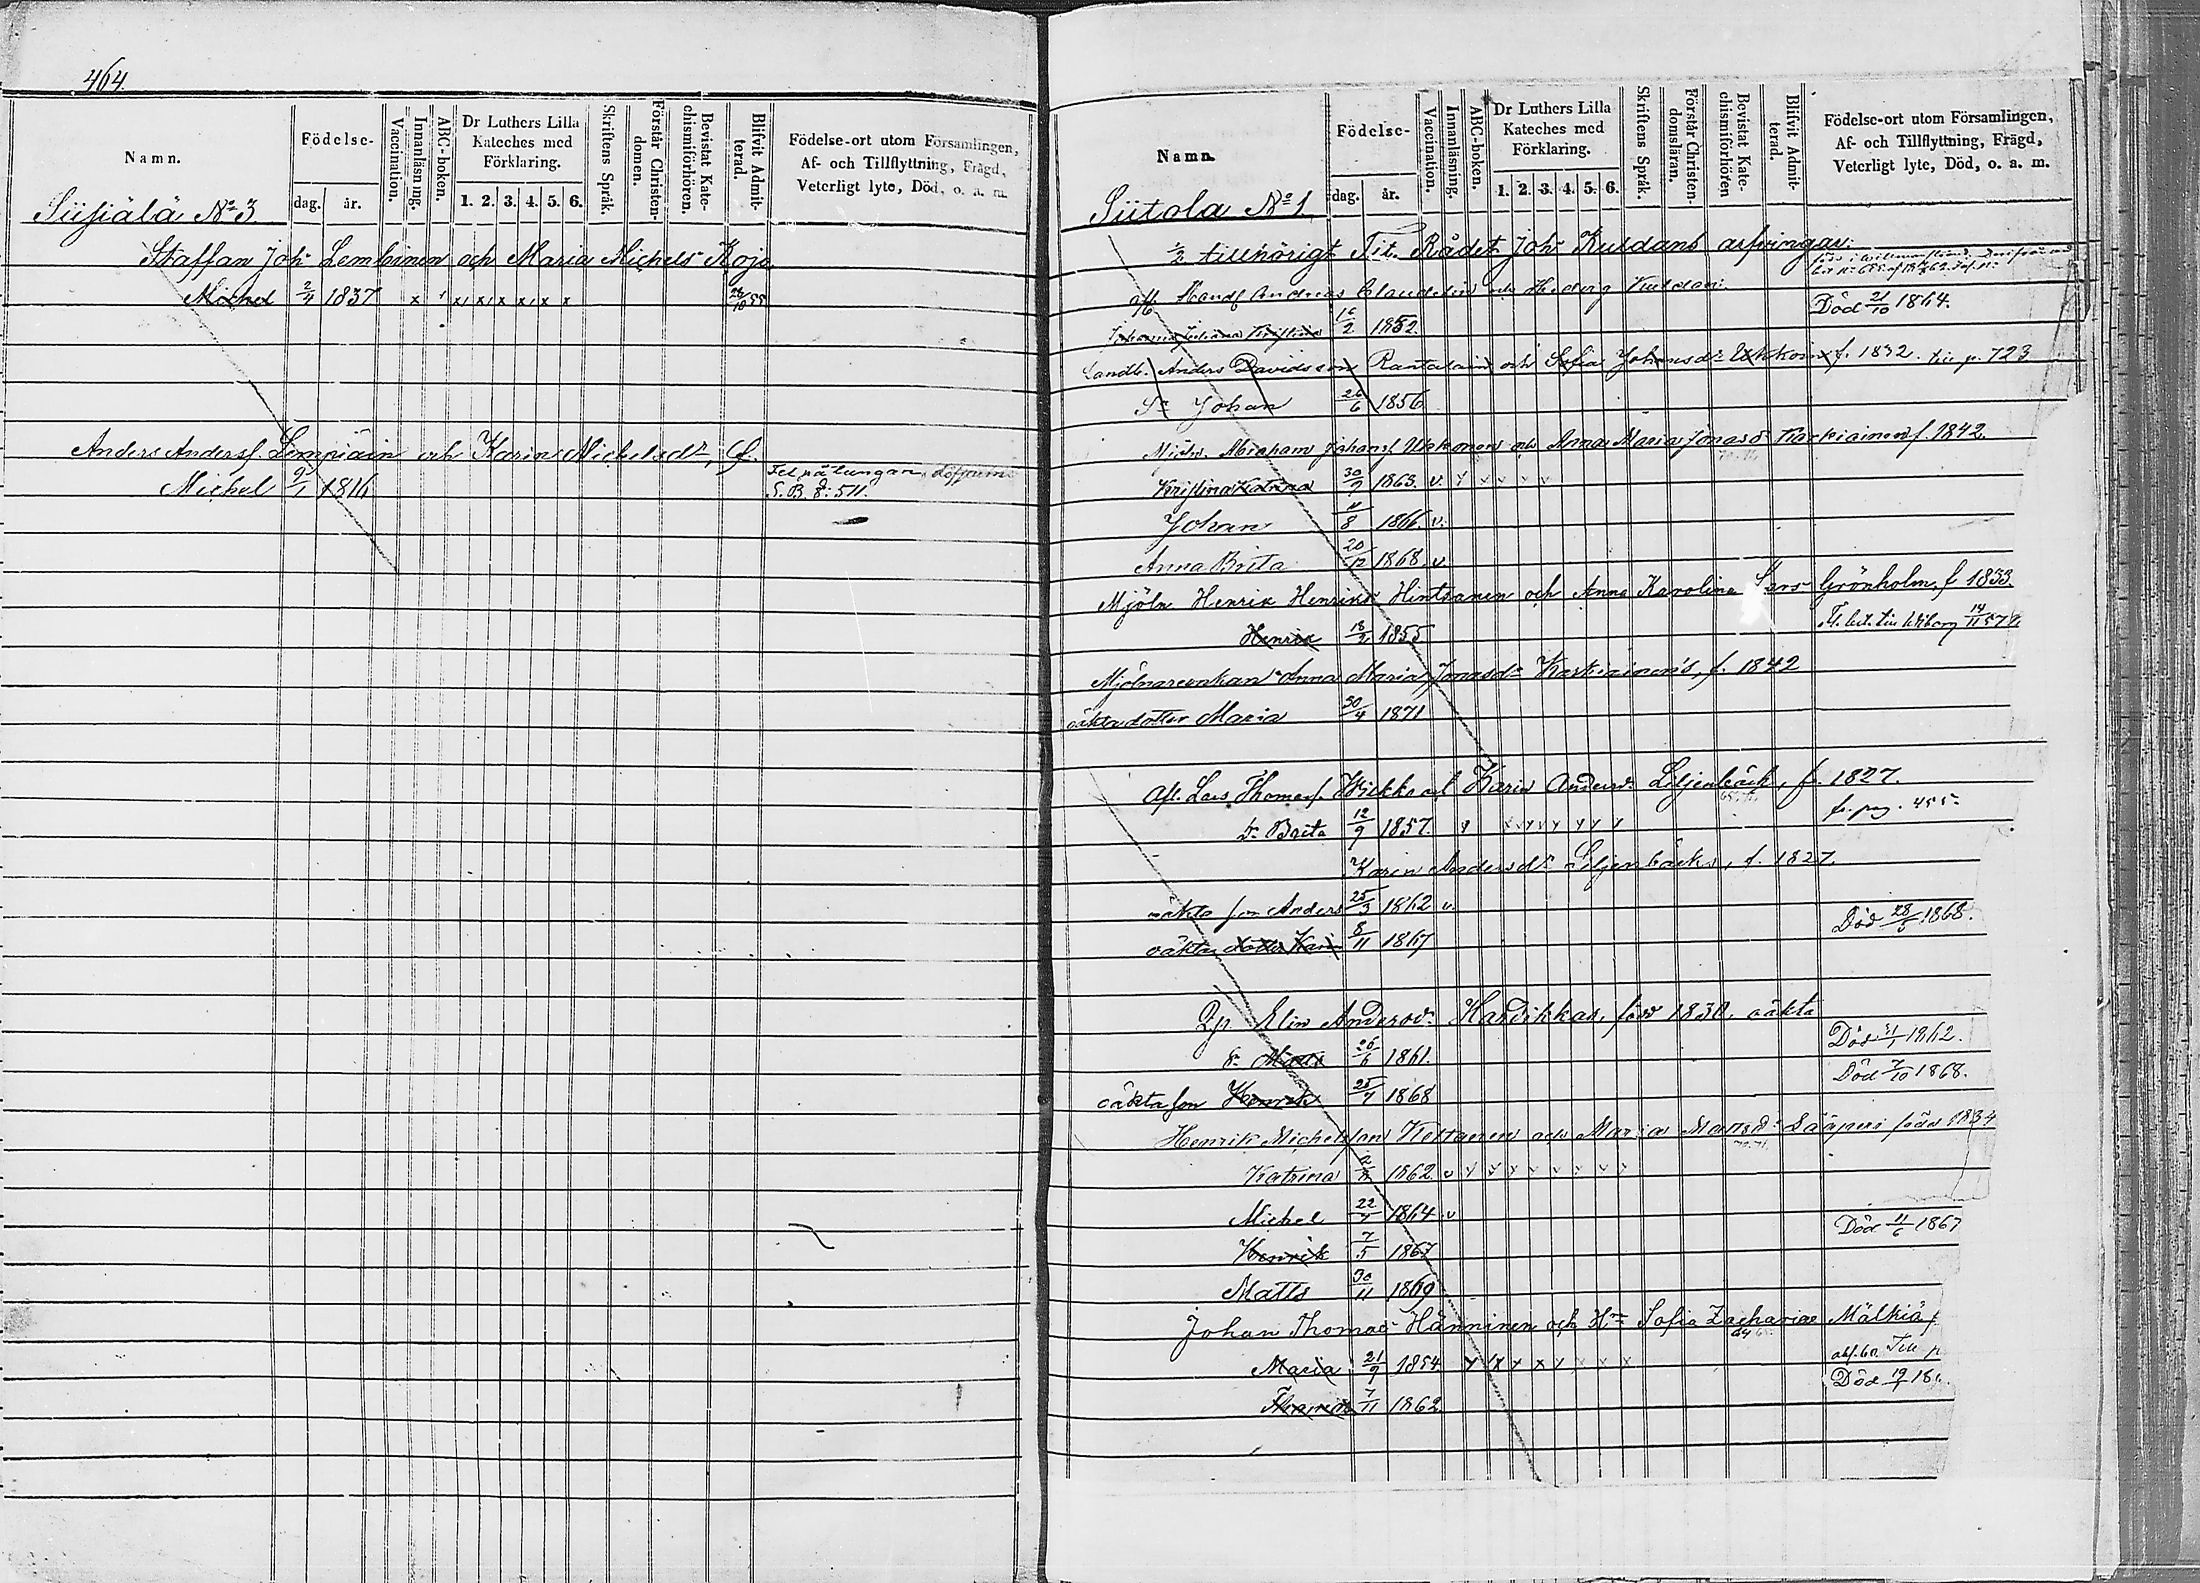 464.
Namn.
Födelse-
dag.
år.
Vaccination.
Innanläsning.
ABC-boken.
Dr Luthers Lilla
Kateches med
Förklaring.
1. 2. 3. 4. 5. 6.
Skriftens Språk.
Förstår Christen-
domen.
Bevistat Kate-
chismiförhören.
Blifvit Admit-
terad.
Födelse-ort utom Församlingen,
Af- och Tillflyttning, Frägd,
Veterligt lyte, Död, o. a. m.
Siisiälä No 3
Staffan Joh. Lembinen och Maria Michels Kojo
Michel 2/4 1837 x 1 x x x x x x 55
Anders Anders. Lempiäin och Karin Michelsdr, f.
Fel på tungan
Michel 9/1 1816 S.B. 8: 511.
Namn.
Födelse-
dag.
år.
Vaccination.
Innanläsning.
ABC-boken.
Dr Luthers Lilla
Kateches med
Förklaring.
1. 2. 3. 4. 5. 6.
Skriftens Språk.
Förstår Christen-
domsläran.
Bevistat Kate-
chismiförhören
Blifvit Admit-
terad.
Födelse-ort utom Församlingen,
Af- och Tillflyttning, Frägd,
Veterligt lyte, Död, o. a. m.
Siitola No 1
1/2 tillhörigt Tit. Rådet Joh. Kuldans arfvingar.
Andreas Claudelin och Hedvig Kuldan.
1852. Död 21/10 1864.
Landb. Anders Davidsson Rantalain och Sofia Johansdr Ukkoin f. 1832. till p. 723
Sn Johan 26/6 1856
Mjöln. Abraham Johans. Ukkonen och Anna Maria Jonasd Karkiainen f. 1842.
Kristina Katrina 30/9 1863. v.
Johan 11/8 1866. v.
Anna Brita 20/12 1868 v
Mjöln Henrik Henriks Hintsanen och Anna Karolina Lars Grönholm, f 1833.
Henrik 18/2 1855 Wiborg 14/11 57
Mjölnareenkan Anna Maria Jonasdr Karkiainen's, f. 1842
oäkta dotter Maria 30/4 1871
Afl. Lars Thomas. Wickko och Karin Andersd. Liljenbäck, f. 1827.
Dr Brita 12/9 1857. fr. pag. 455
Karin Andersdr Liljenbäcks, f. 1827.
oäkta son Anders 25/3 1862 v.
oäkta dotter Karin 8/11 1867 Död 28/5 1868.
Pp. Elin Andersdr Hardikkas, född 1830, oäkta
26/6 1861. Död 31/1 1862.
oäkta son Henrik 25/7 1868 Död 7/10 1868.
Henrik Michelsson Kettunen och Maria Matsd Lääperi född 1834
Katrina 1862. v
Michel 22/7 1864 v
Henrik 7/5 1867 Död 11/6 1867
Matts 30/11 1869
Johan Thomas Hänninen och Hu Sofia Zacharias Mälkiä f
Maria 21/9 1854
7/11 1862 Död